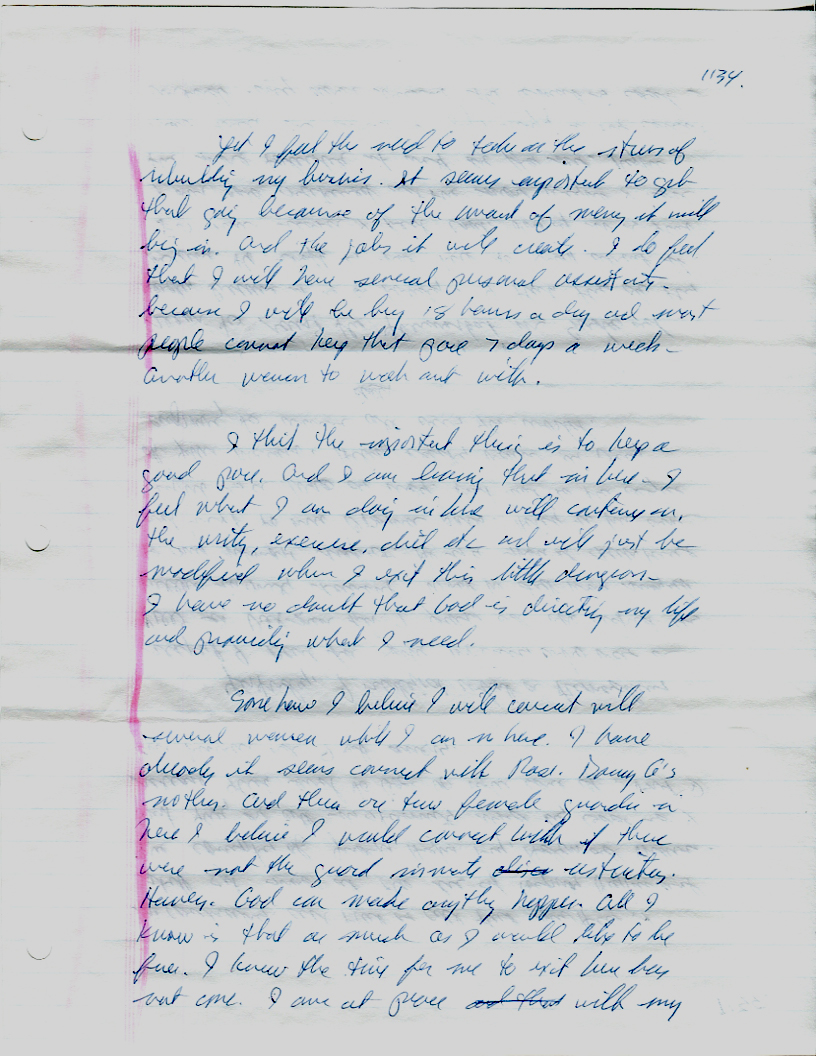 1134.
Yet I feel the need to take on the stress of
rebuilding my business. It seems important to get
that going because of the amount of money it will
bring in. And the jobs it will create. I do feel
that I will have several personal assistants
because I will be busy 18 hours a day and most
people cannot keep that pace 7 days a week -
Another woman to work out with.
I think the important thing is to keep a
good pace. And I am learning that in here - I
feel what I am doing in here will continue on.
the writing, exercise, diet etc and will just be
modified when I exit this little dungeon -
I have no doubt that God is directing my life
and providing what I need.
Somehow I believe I will connect with
several women while I am in here. I have
already it seems connect with Rose. Danny G's
mother. And there are two female guards in
here I believe I would connect with if there
were not the guard inmate restrictions.
However. God can make anything happen. All I
know is that as much as I would like to be
free. I know the time for me to exit here has
not come. I am at peace with my